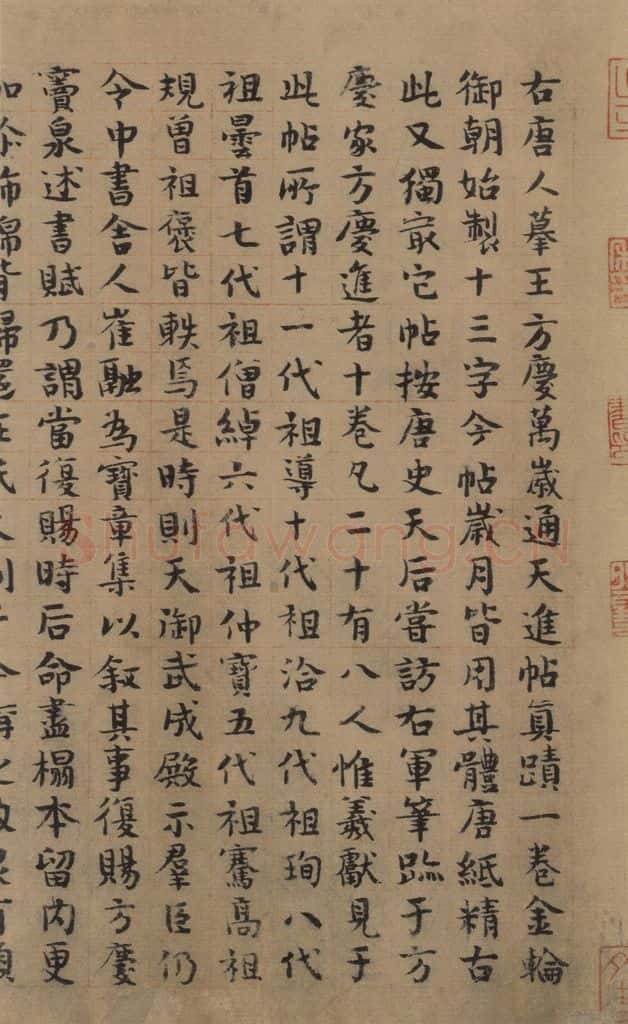 右唐人摹王方慶萬歲通天進帖眞蹟一卷金輪
御朝始製十三字今帖歲月皆用其體唐紙精古
此又獨冣它帖按唐史天后嘗訪右軍筆跡于方
慶家方慶進者十卷凡二十有八人惟羲獻見于
此帖所謂十一代祖導十代祖洽九代祖珣八代
祖曇首七代祖僧綽六代祖仲寶五代祖騫高祖
規曾祖褒皆軼焉是時則天御武成殿示羣臣仍
令中書舍人崔融為寶章集以叙其事復賜方慶
竇泉述書賦乃謂當復賜時后命盡榻本留內更
Shufawang.CN